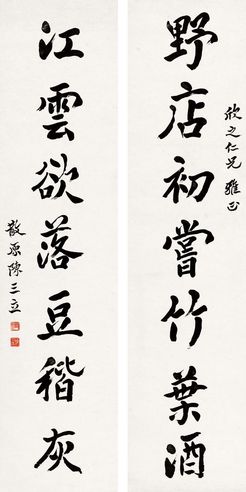 欣之仁兄雅正
野店初嘗竹葉酒
江雲欲落豆稭灰
散原陳三立